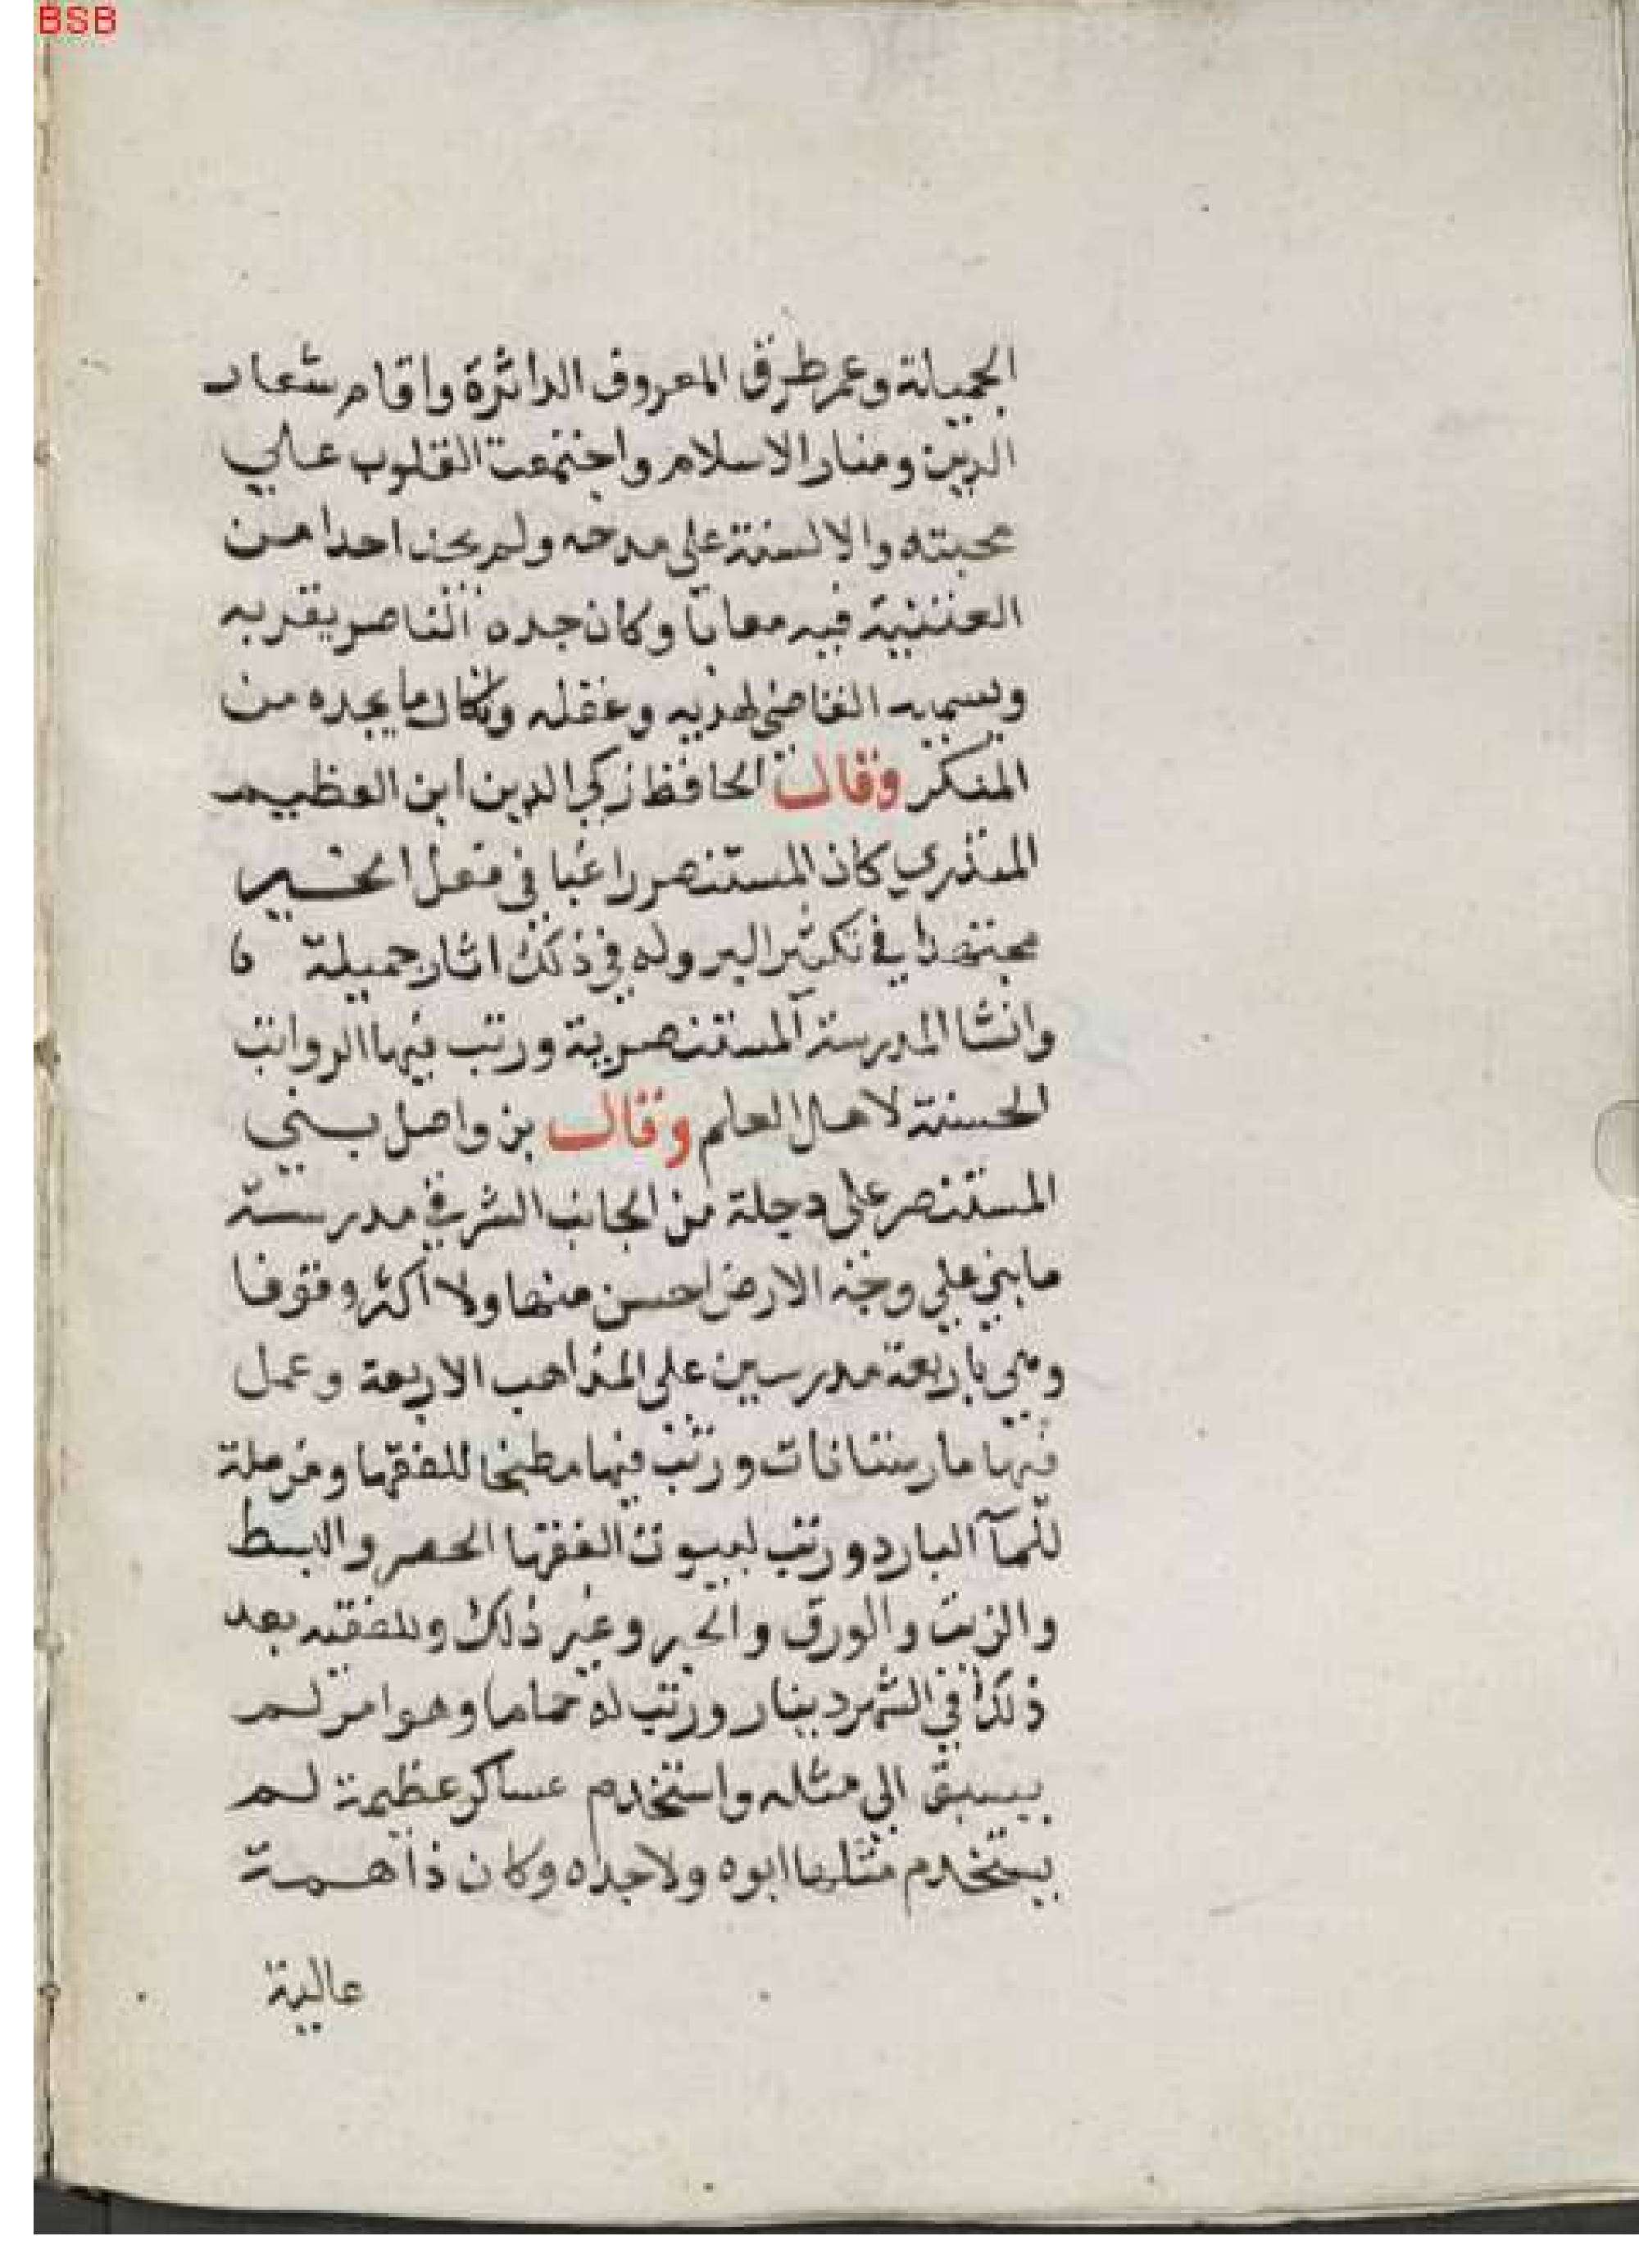 BSB
الجميلة وعمر طرق المعروف الداثرة واقام شعار
الدين ومنار الاسلام واجتمعت القلوب علي
محبته والالسنة علي مدحه ولم يجد احدا من
فيه معابا وكان جده الناصر يقربه
ويسميه القاضي لهديه وعقله وانكار ما يجده من
المنكر وقال الحافظ زكي الدين ابن العظيم
المنذري كان المستنصر راغبا في فعل الخير
مجتهدا في تكثير البر وله في ذلك اثار جميلة
وانشا المدرسة المستنصرية ورتب فيها الرواتب
الحسنة لاهل العلم وقال بن واصل بني
المستنصر علي دجلة من الجانب الشرقي مدرسة
ما بني علي وجه الارض احسن منها ولا اكثر وقوفا
وهي باربعة مدرسين علي المذاهب الاربعة وعمل
فيها مارستانات ورتب فيها مطبخا للفقها ومزملة
للمآ البارد ورتب لبيوت الفقها الحصر والبسط
والزيت والورق والحبر وغير ذلك وللفقيه بعد
ذلك في الشهر دينار ورتب له حماما وهو امر لم
يسبق الي مثله واستخدم عساكر عظيمة لم
يستخدم مثلها ابوه ولا جده وكان ذا همة
عالية